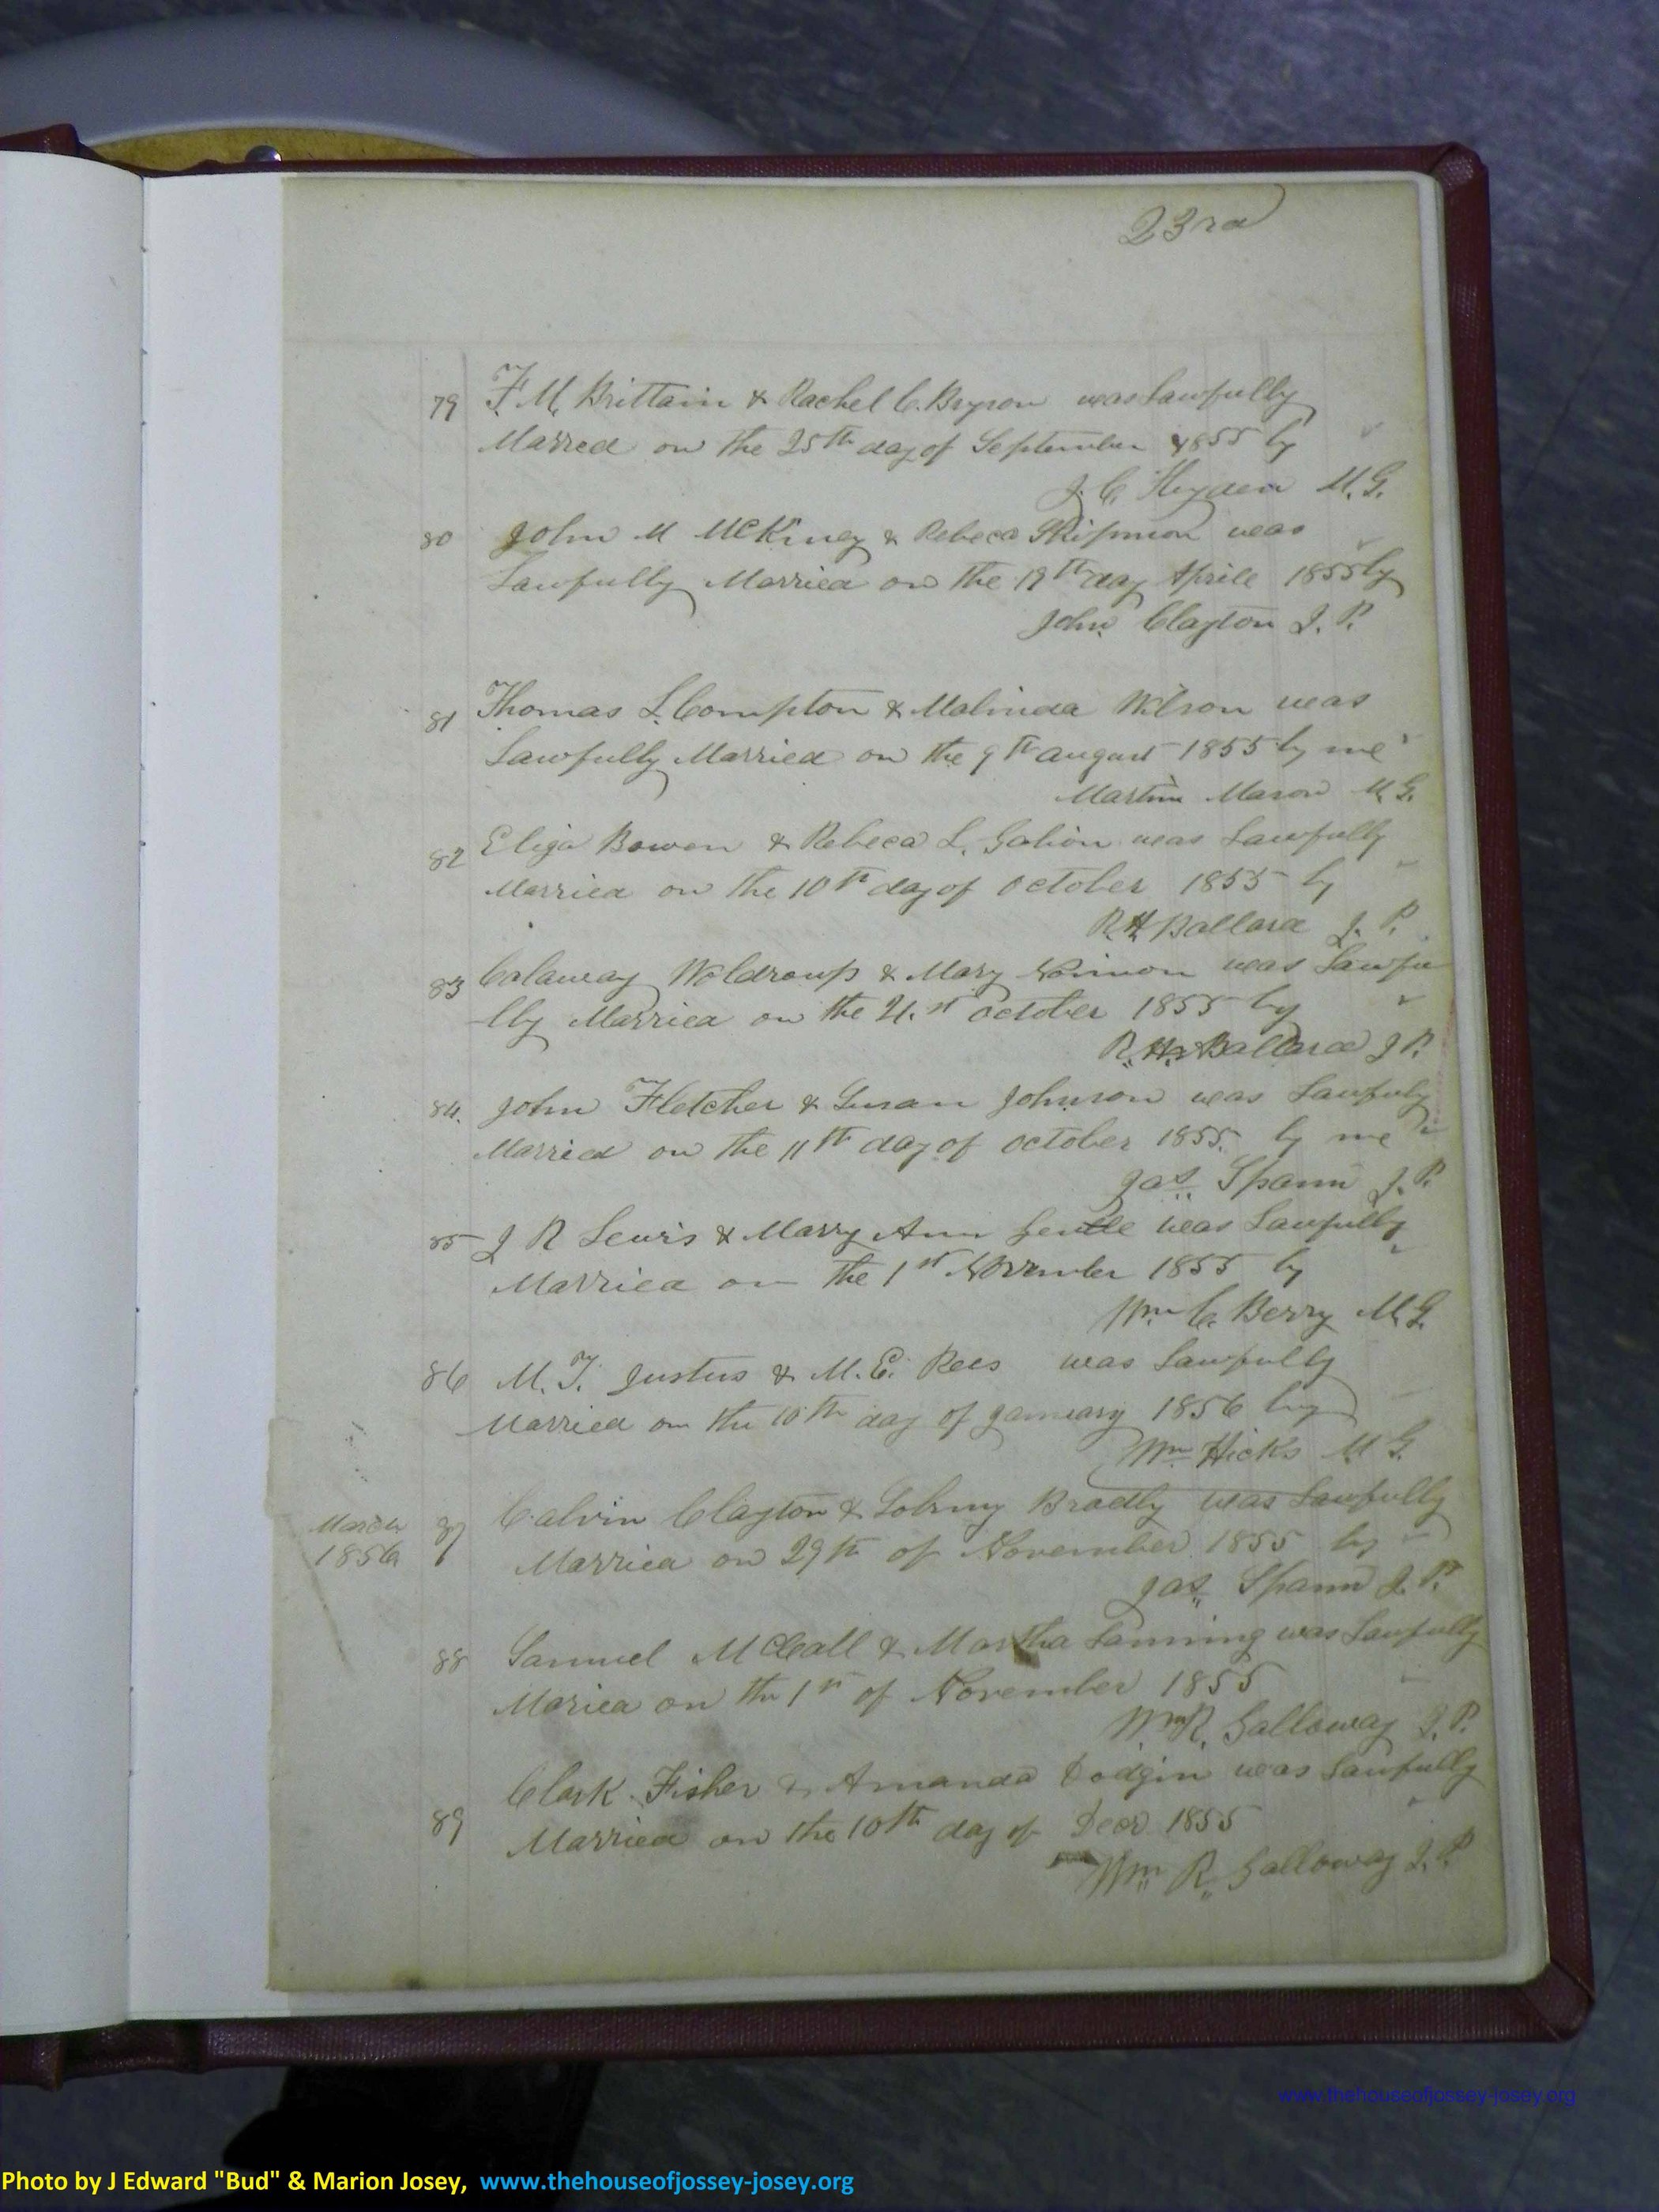 23rd
79 F. M. Brittain & Rachel C. Bryson was Lawfully
Married on the 25th day of September 1855 by
J. C. Hyden M. G.
80 John M McKiney & Rebeca Skipmon was
Lawfully Married on the 19th day Aprile 1855 by
John Clayton J. P.
81 Thomas L. Compton & Malinda Wilson was
Lawfully Married on the 9th august 1855 by me
Martin Mason M. G.
82 Eliga Bowen & Rebeca L. Galion was Lawfully
Married on the 10th day of October 1855 by
R. H. Ballard J. P.
83 Calaway Woldroup & Mary was Lawfu
lly Married on the 21.st October 1855 by
R. H. Ballard J P.
84. John Fletcher & Susan Johnson was Lawfuly
Married on the 11th day of October 1855. by me
Jas. Spann J. P.
85 J R Lewis & Marry Ann Gentle was Lawfully
Married on the 1st November 1855 by
Wm. C. Berry M. G.
86 M. T. Justus & M. E. Rees was Lawfully
Married on the 10th day of January 1856 by
Wm. Hicks M. G.
March
1856
87 Calvin Clayton & Bradly was Lawfully
Married on 29th of November 1855 by
Jas. Spann J. P.
88 Samuel McCall & Martha Lanning was Lawfully
Maried on the 1st of November 1855
Wm. R. Galloway J. P.
89 Clark Fisher & Amanda Dodgin was Lawfully
Married on the 10th day of Decr 1855
Wm. R. Galloway J. P.
www.thehouseofjossey-josey.org
Photo by J Edward "Bud" & Marion Josey, www.thehouseofjossey-josey.org